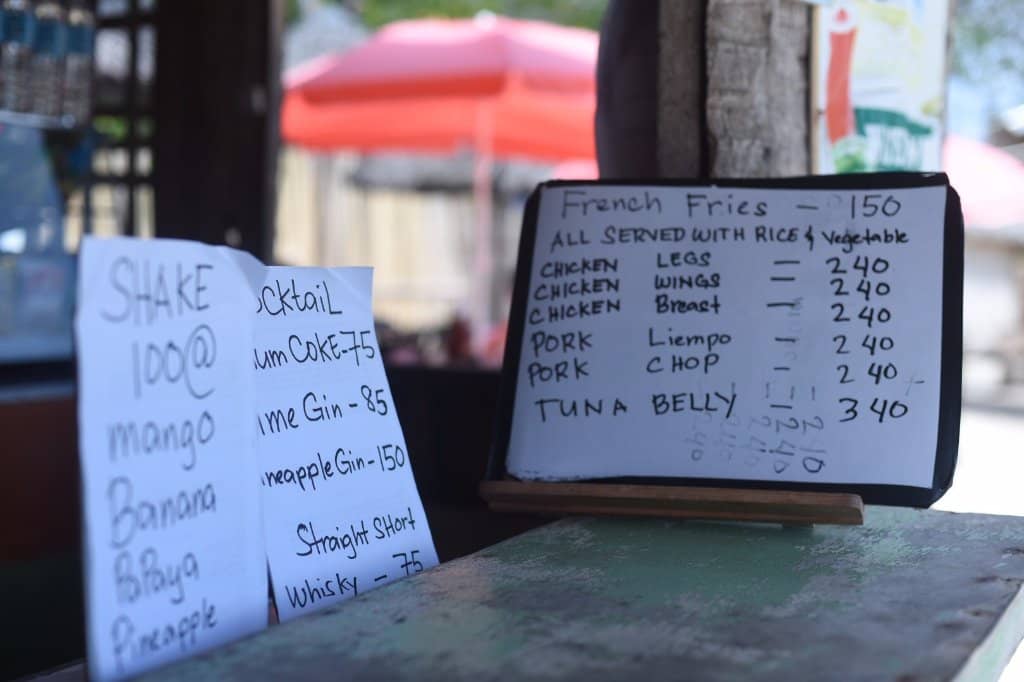 SHAKE
100@
mango
Banana
PaPaya
Pineapple
ocktaiL
um COKE-75
me Gin - 85
neapple Gin - 150
Straight SHort
Whisky - 75
French Fries - 150
ALL SERVED WITH RICE & Vegetable
CHICKEN LEGS - 240
CHICKEN WINGS - 240
CHICKEN Breast - 240
PORK Liempo - 240
PORK CHOP - 240
TUNA BELLY - 340